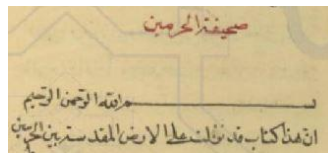 صحيفة الحرمين
بسم الله الرحمن الرحيم
ان هذا كتاب قد نزلت على الارض المقدسة بين الحرمين